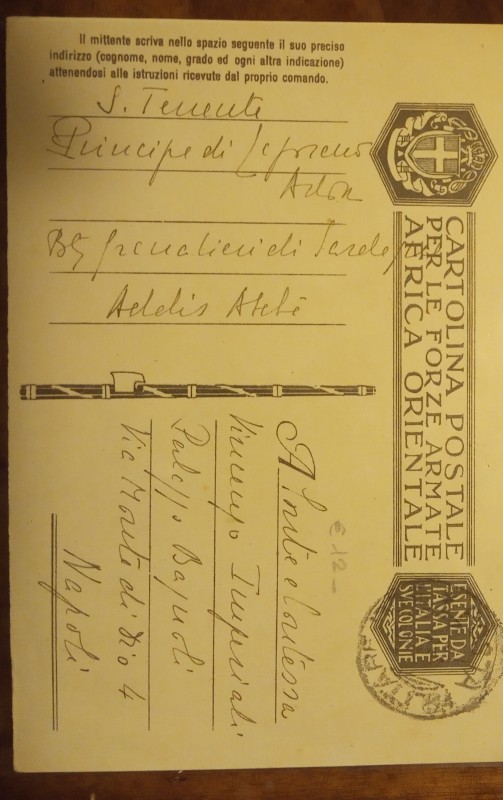 Il mittente scriva nello spazio seguente il suo preciso
indirizzo (cognome, nome, grado ed ogni altra indicazione)
attenendosi alle istruzioni ricevute dal proprio comando.
S. Tenente
Principe di
Btg granatieri di
Addis Abebà
CARTOLINA POSTALE
PER LE FORZE ARMATE
AFRICA ORIENTALE
A Conte e Contessa
Vincenzo Imperiali
Palazzo Bagnoli
Via Monte di Dio 4
Napoli
€ 12-
ESENTE DA
TASSA PER
L'ITALIA E
SVE COLONIE